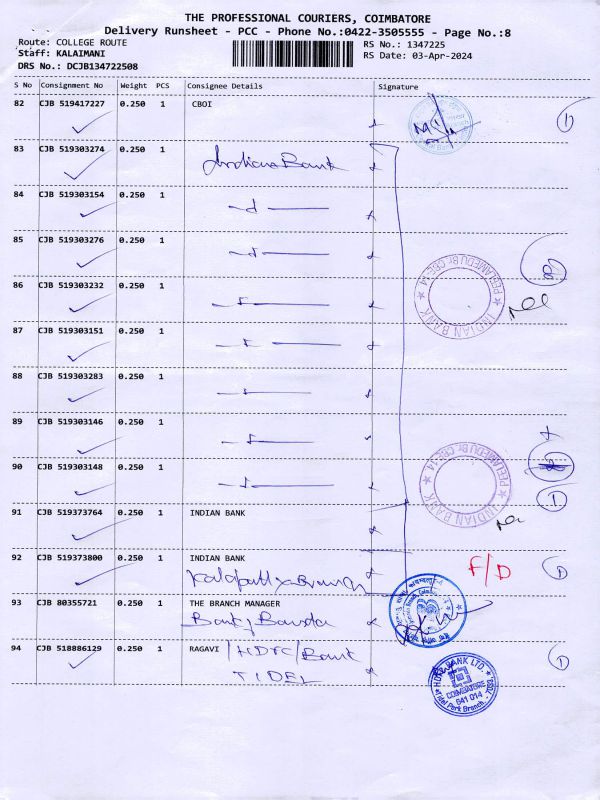 THE PROFESSIONAL COURIERS, COIMBATORE
Delivery Runsheet - PCC - Phone No.:0422-3505555 - Page No.:8
Route: COLLEGE ROUTE
RS No.: 1347225
Staff: KALAIMANI
RS Date: 03-Apr-2024
DRS No.: DCJB134722508
S No Consignment No Weight PCS Consignee Details Signature
82 CJB 519417227 0.250 1 CBOI
83 CJB 519303274 0.250 1 Indian Bank
84 CJB 519303154 0.250 1
85 CJB 519303276 0.250 1
86 CJB 519303232 0.250 1
INDIAN BANK ★ PEELAMEDU Br. CBE-14 ★
87 CJB 519303151 0.250 1
88 CJB 519303283 0.250 1
89 CJB 519303146 0.250 1
90 CJB 519303148 0.250 1
INDIAN BANK ★ PEELAMEDU Br. CBE-14 ★
91 CJB 519373764 0.250 1 INDIAN BANK
92 CJB 519373800 0.250 1 INDIAN BANK
F/D
93 CJB 80355721 0.250 1 THE BRANCH MANAGER
Bank of Baroda
94 CJB 518886129 0.250 1 RAGAVI / HDFC / Bank
TIDEL
HDFC BANK LTD.
COIMBATORE
641 014
Tidel Park Branch